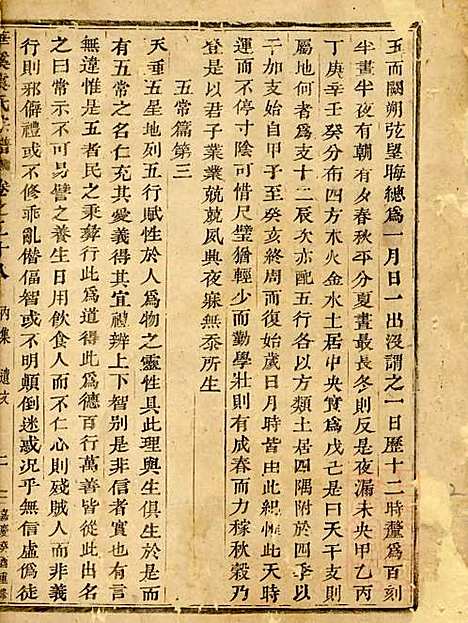 五而闕朔弦望晦總爲一月日一出沒謂之一日歷十二時釐爲百刻
半晝半夜有朝有夕春秋平分夏晝最長冬則反是夜漏未央甲乙丙
丁庚辛壬癸分布四方木火金水土居中央寔爲戊己是曰天干支則
屬地何者爲支十二辰次亦配五行各以方類土居四隅附於四季以
干加支始自甲子至癸亥終周而復始歲日月時皆由此而紀四時
運而不停寸陰可惜尺璧猶輕少而勤學壯則有成春而力稼秋穀乃
登是以君子業業兢兢夙興夜寐無忝所生
五常篇第三
天垂五星地列五行賦性於人爲物之靈性具此理與生俱生所性
有五常之名仁充其愛義得其宜禮辨上下智别是非信者實也有言
無違惟是五者民之秉彝行此爲道得此爲德百行萬善皆從此出名
之曰常示不可易譬之養生日用飲食人而不仁心則殘賊人而非義
行則邪僻禮或不修乖亂僭偪智或不明顛倒迷惑况乎無信虛爲徒
氏宗譜 卷之十八 丙集 遺文 二 嘉慶